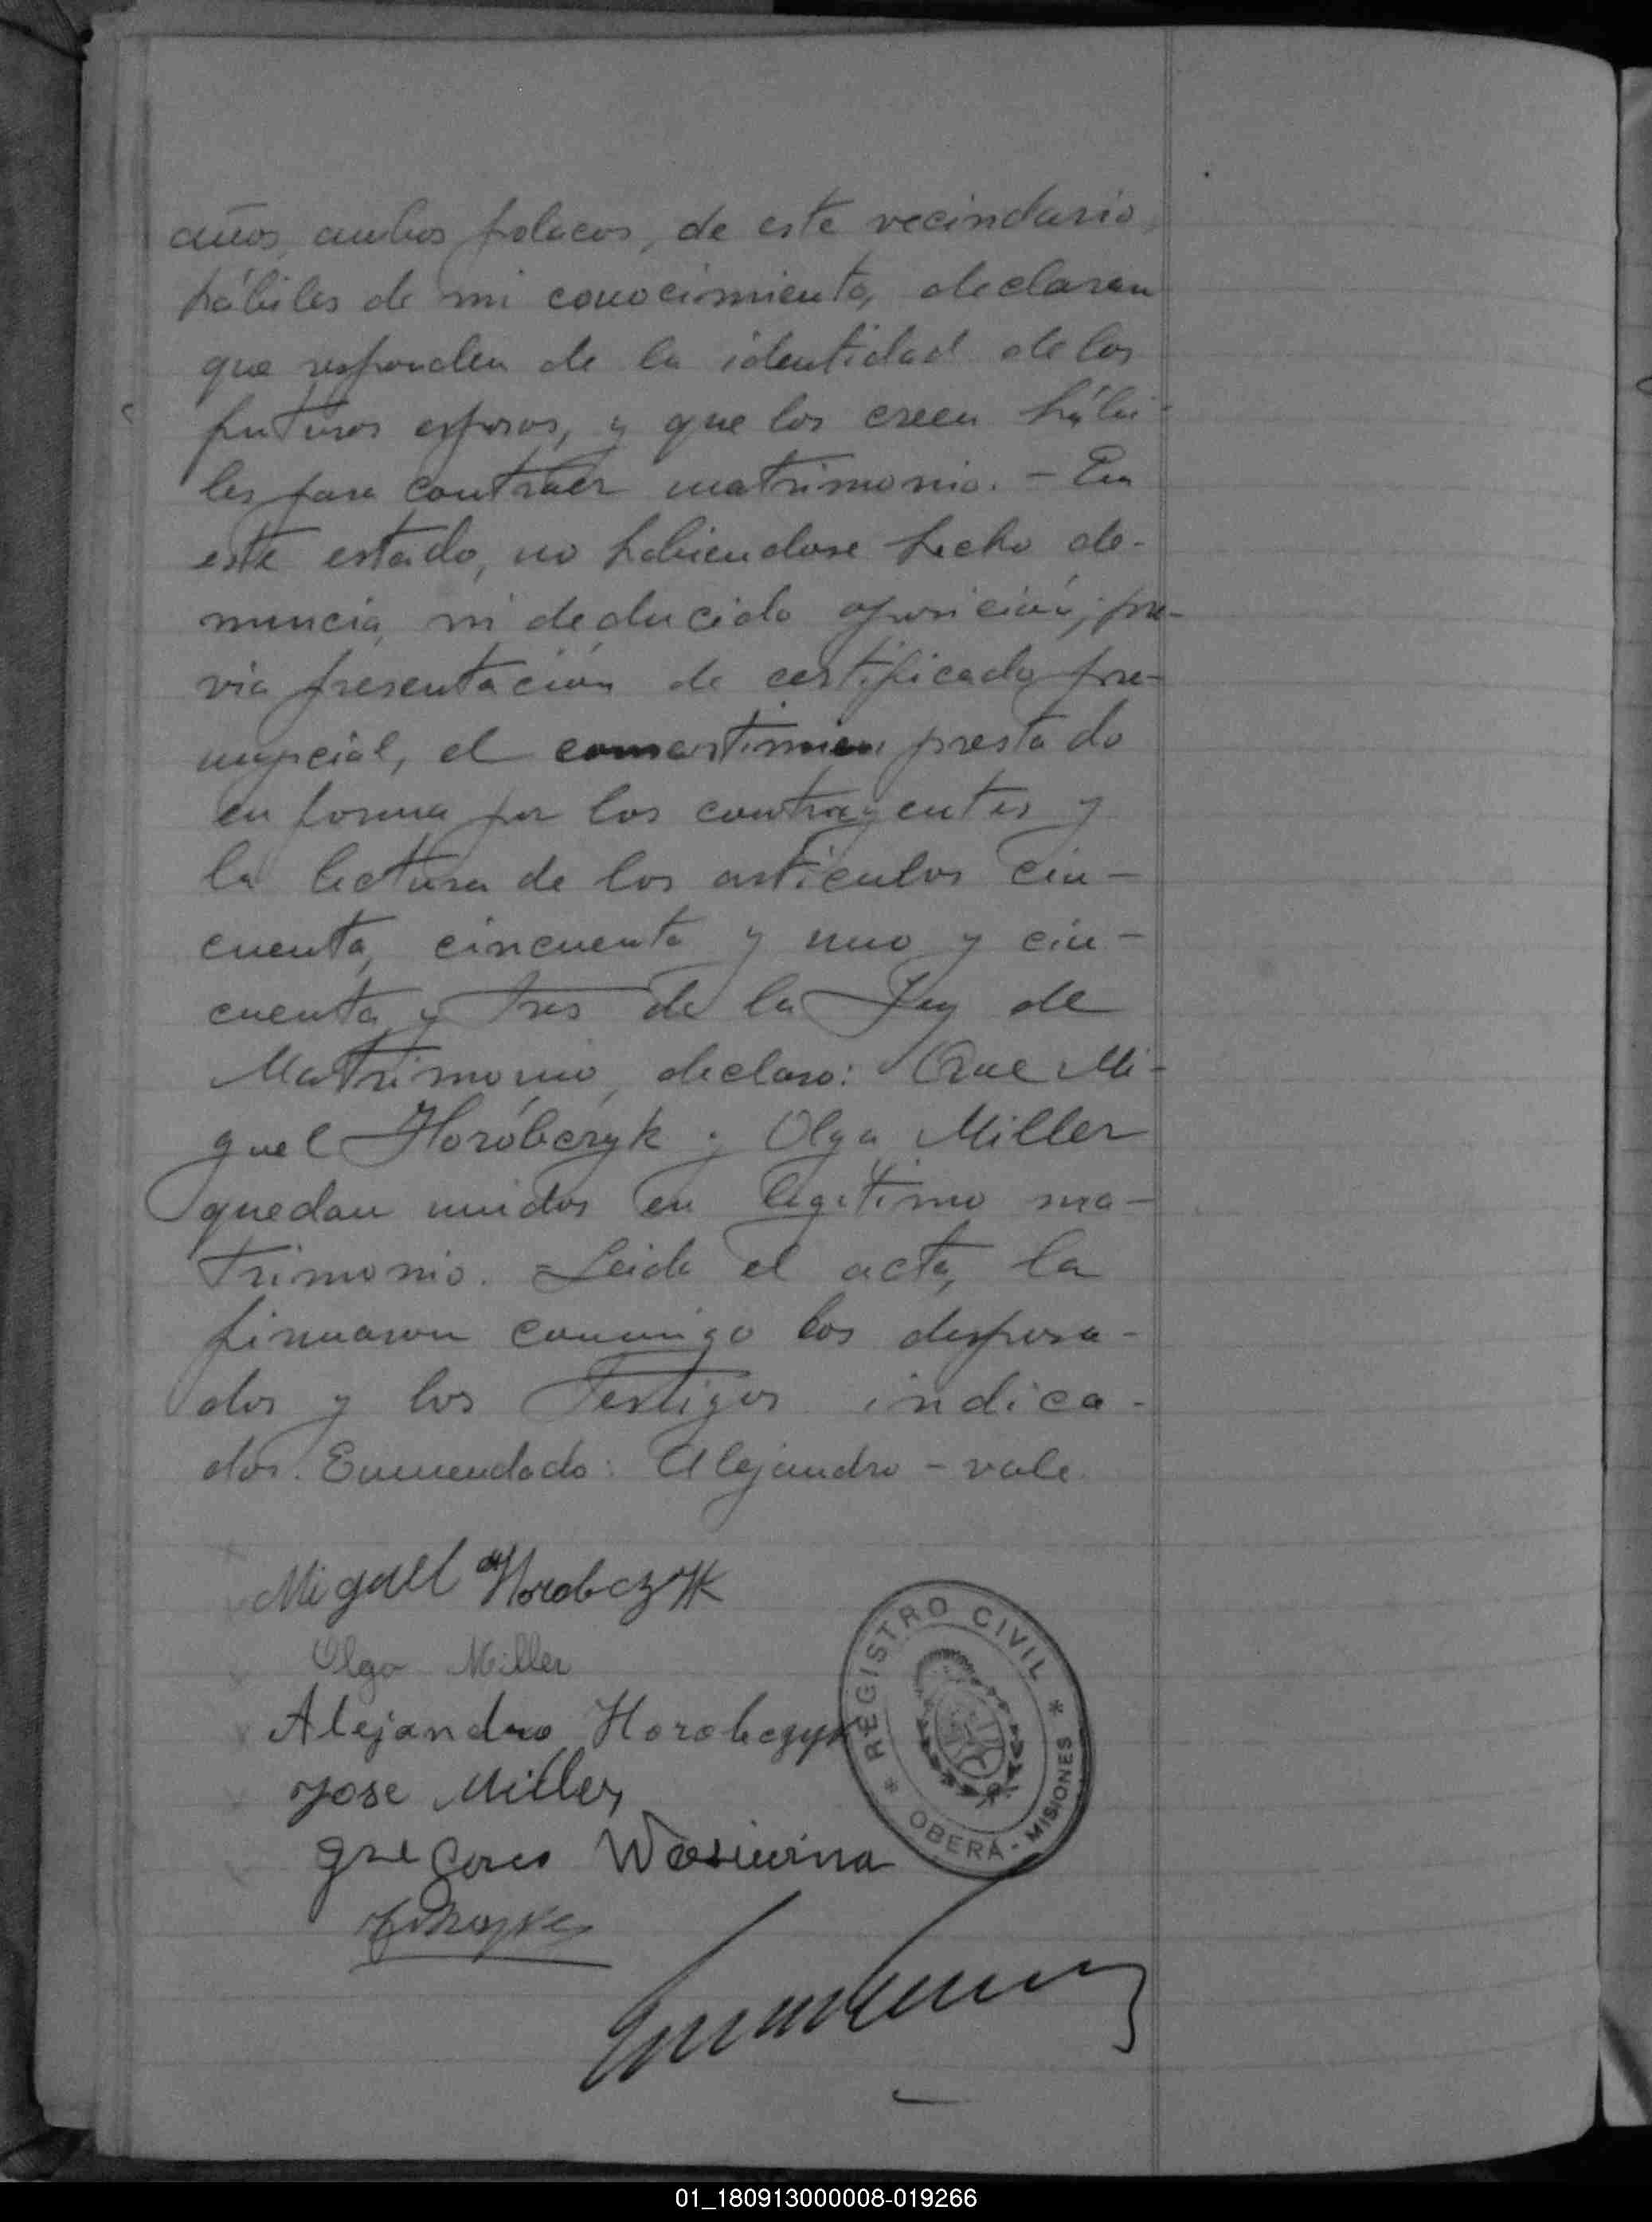 años, ambos polacos, de este vecindario,
hábiles de mi conocimiento, declaran
que responden de la identidad de los
futuros esposos, y que los creen hábi-
les para contraer matrimonio. - En
este estado, no habiendose hecho de-
nuncia, ni deducido oposición, pre-
via presentación de certificado pre-
nupcial, el prestado
en forma por los contrayentes y
la lectura de los articulos cin-
cuenta, cincuenta y uno y cin-
cuenta y tres de la Ley de
Matrimonio, declaro: Que Mi-
guel Horóbczyk y Olga Miller
quedan unidos en legitimo ma-
trimonio. Leida el acta, la
firmaron conmigo los desposa-
dos y los Testigos indica-
dos. Enmendado: Alejandro - vale
Miguel Horobczyk
Olga Miller
Alejandro Horobczyk
Jose Miller
REGISTRO CIVIL
OBERÁ - MISIONES
01_180913000008-019266